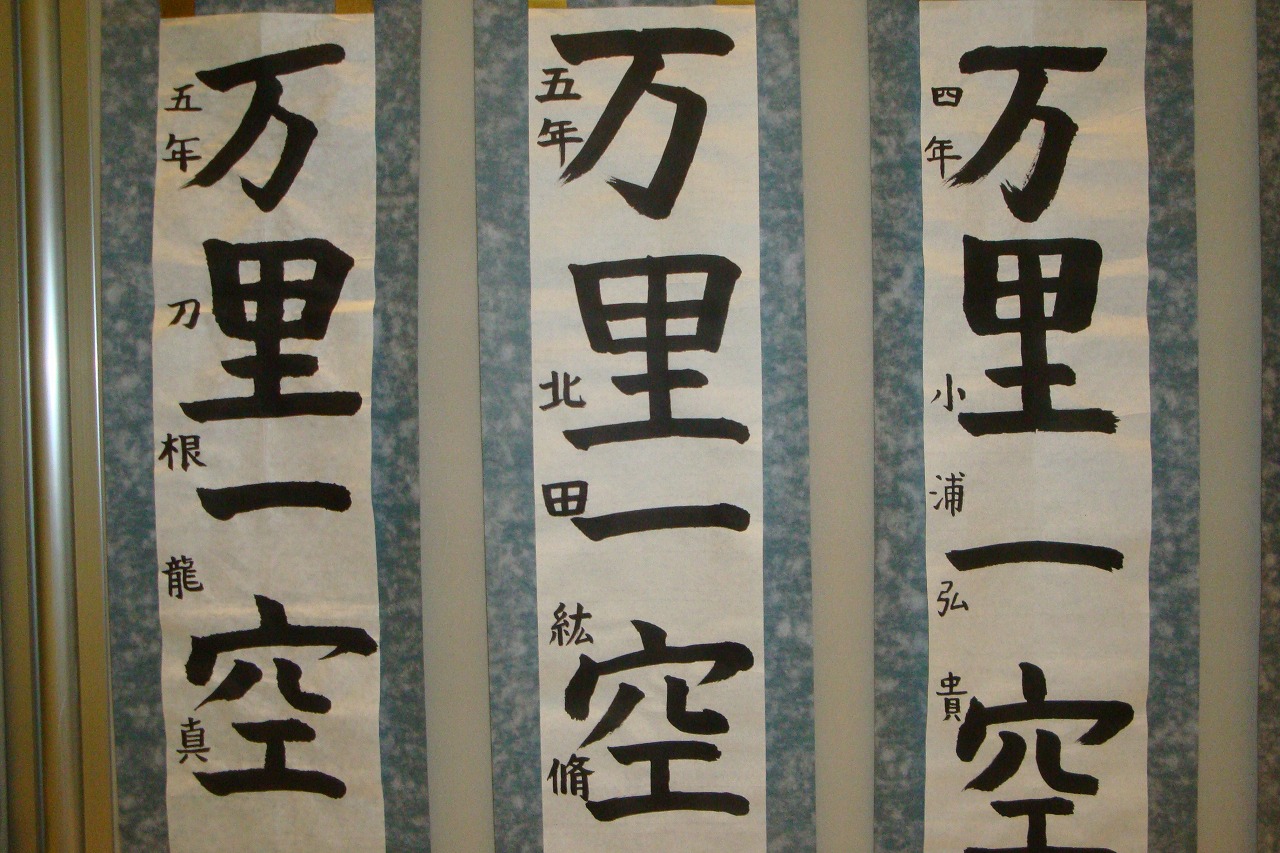 万里一空
四年 小浦弘貴
万里一空
五年 北田紘脩
万里一空
五年 刀根龍真